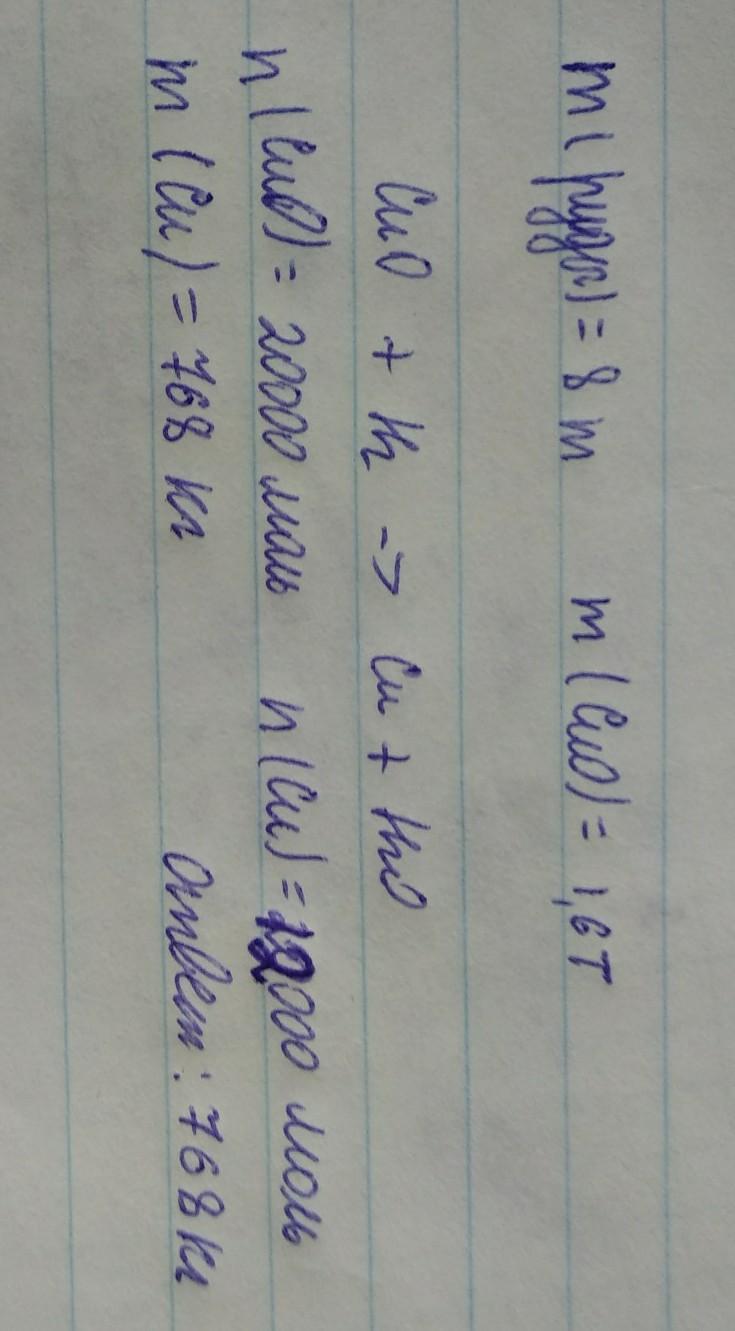 m(руды) = 8 т m(CuO) = 1,6 т
CuO + H2 -> Cu + H2O
n(CuO) = 20000 моль n(Cu) = 12000 моль
m(Cu) = 768 кг Ответ: 768 кг